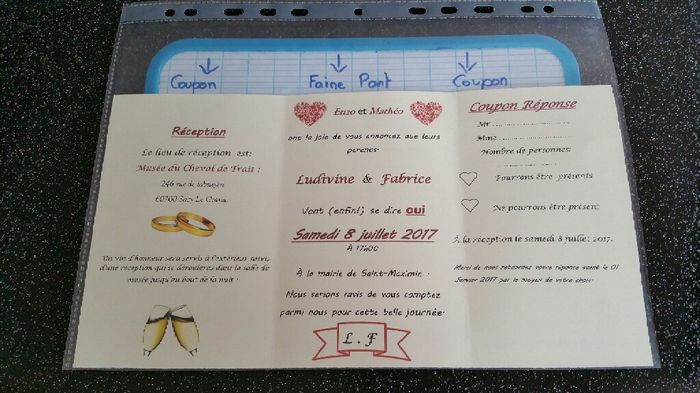 Coupon
Faire Part
Coupon
Réception
Le lieu de réception est:
Musée du Cheval de Trait :
246 rue de
60700 Sacy Le Grand.
Un vin d'honneur sera servis à l'extérieur suivis
d'une réception qui se dérouleras dans la salle du
musée jusqu'au bout de la nuit !
Enzo et Mathéo
ont la joie de vous annoncez que leurs
parents:
Ludivine & Fabrice
Vont (enfin!) se dire oui
Samedi 8 juillet 2017
À 17h00
À la mairie de Saint-Maximin.
Nous serions ravis de vous comptez
parmi nous pour cette belle journée.
L . F
Coupon Réponse
Mr
Mme
Nombre de personnes:
Pourrons être présents
Ne pourrons être présent
À la réception le samedi 8 juillet 2017.
Merci de nous retournez votre réponse avant le 01
Janvier 2017 par le moyen de votre choix.